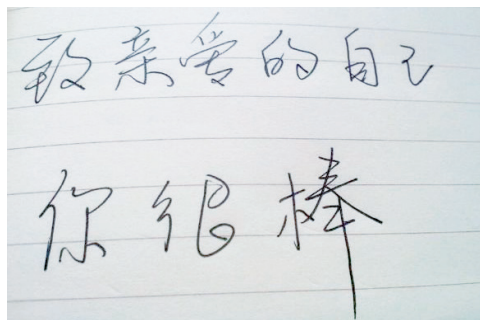 致亲爱的自己
你很棒